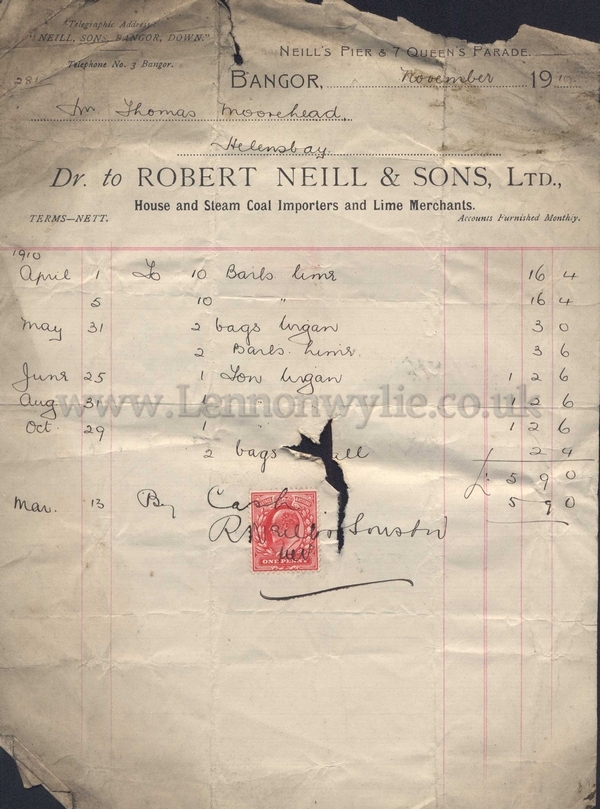 Telegraphic Address
"NEILL, SONS, BANGOR, DOWN."
Telephone No. 3 Bangor.
NEILL'S PIER & 7 QUEEN'S PARADE.
BANGOR, November 1910
Mr Thomas Moorehead,
Helensbay
Dr. to ROBERT NEILL & SONS, LTD.,
House and Steam Coal Importers and Lime Merchants.
TERMS—NETT. Accounts Furnished Monthly.
1910
April 1 To 10 Barls lime 16 4
5 10 " 16 4
May 31 2 bags Wigan 3 0
2 Barls. Lime. 3 6
June 25 1 Ton Wigan 1 2 6
Aug 31 1 1 2 6
Oct. 29 1 1 2 6
2 bags 2 4
£ 5 9 0
Mar. 13 By Cash 5 9 0
ONE PENNY
www.Lennonwylie.co.uk